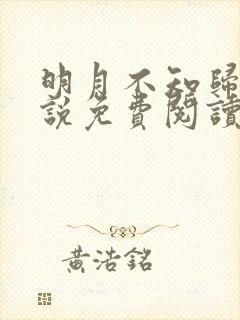 明月不知歸
說免費閱讀
黃浩銘